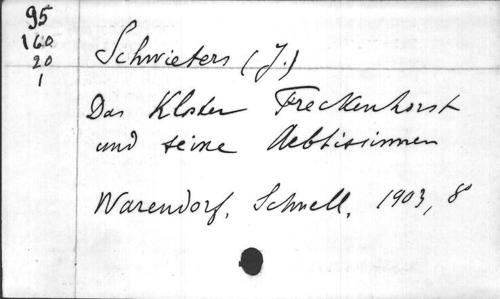 95
160
20
1
Schwieters (J.)
Das Kloster Freckenhorst
und seine Aebtissinnen
Warendorf, Schnell, 1903, 8°